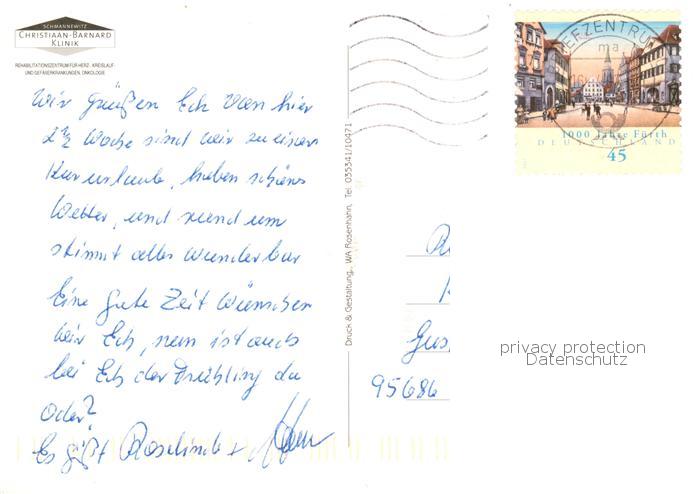 SCHMANNEWITZ
CHRISTIAAN-BARNARD
KLINIK
REHABILITATIONSZENTRUM FÜR HERZ-, KREISLAUF-
UND GEFÄßERKRANKUNGEN, ONKOLOGIE
Wir grüßen Ech von hier
2½ Woche sind wir zu einem
Kururlaub, haben schönes
Wetter, und rund um
stimmt alles wunderbar
Eine gute Zeit wünschen
wir Ech, nun ist auch
bei Ech der Frühling da
oder?
Es grüßt Roselinde +
Druck & Gestaltung, WA Rosenhahn, Tel. 035341/10471
BRIEFZENTRUM
1000 Jahre Fürth
DEUTSCHLAND
45
95686
privacy protection
Datenschutz